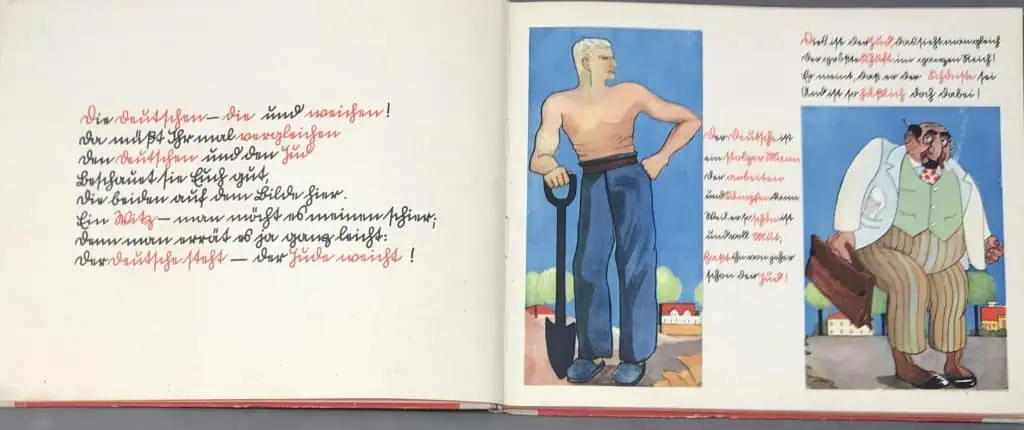 Die Deutschen – die und weichen!
Da müßt Ihr mal vergleichen
Den Deutschen und den Jud
Beschauet sie Euch gut,
Die beiden auf dem Bilde hier.
Ein Witz – man möcht es meinen schier;
Denn man errät es ja ganz leicht:
Der Deutsche steht – der Jude weicht!
Der Deutsche ist
ein stolzer Mann
Der arbeiten
und kämpfen kann.
Weil er so schön ist
und voll Mut,
Haßt ihn von jeher
schon der Jud!
Dies ist der Jud, das sieht man gleich
Der größte Schuft im ganzen Reich!
Er meint, daß er der Schönste sei
Und ist so häßlich doch dabei!